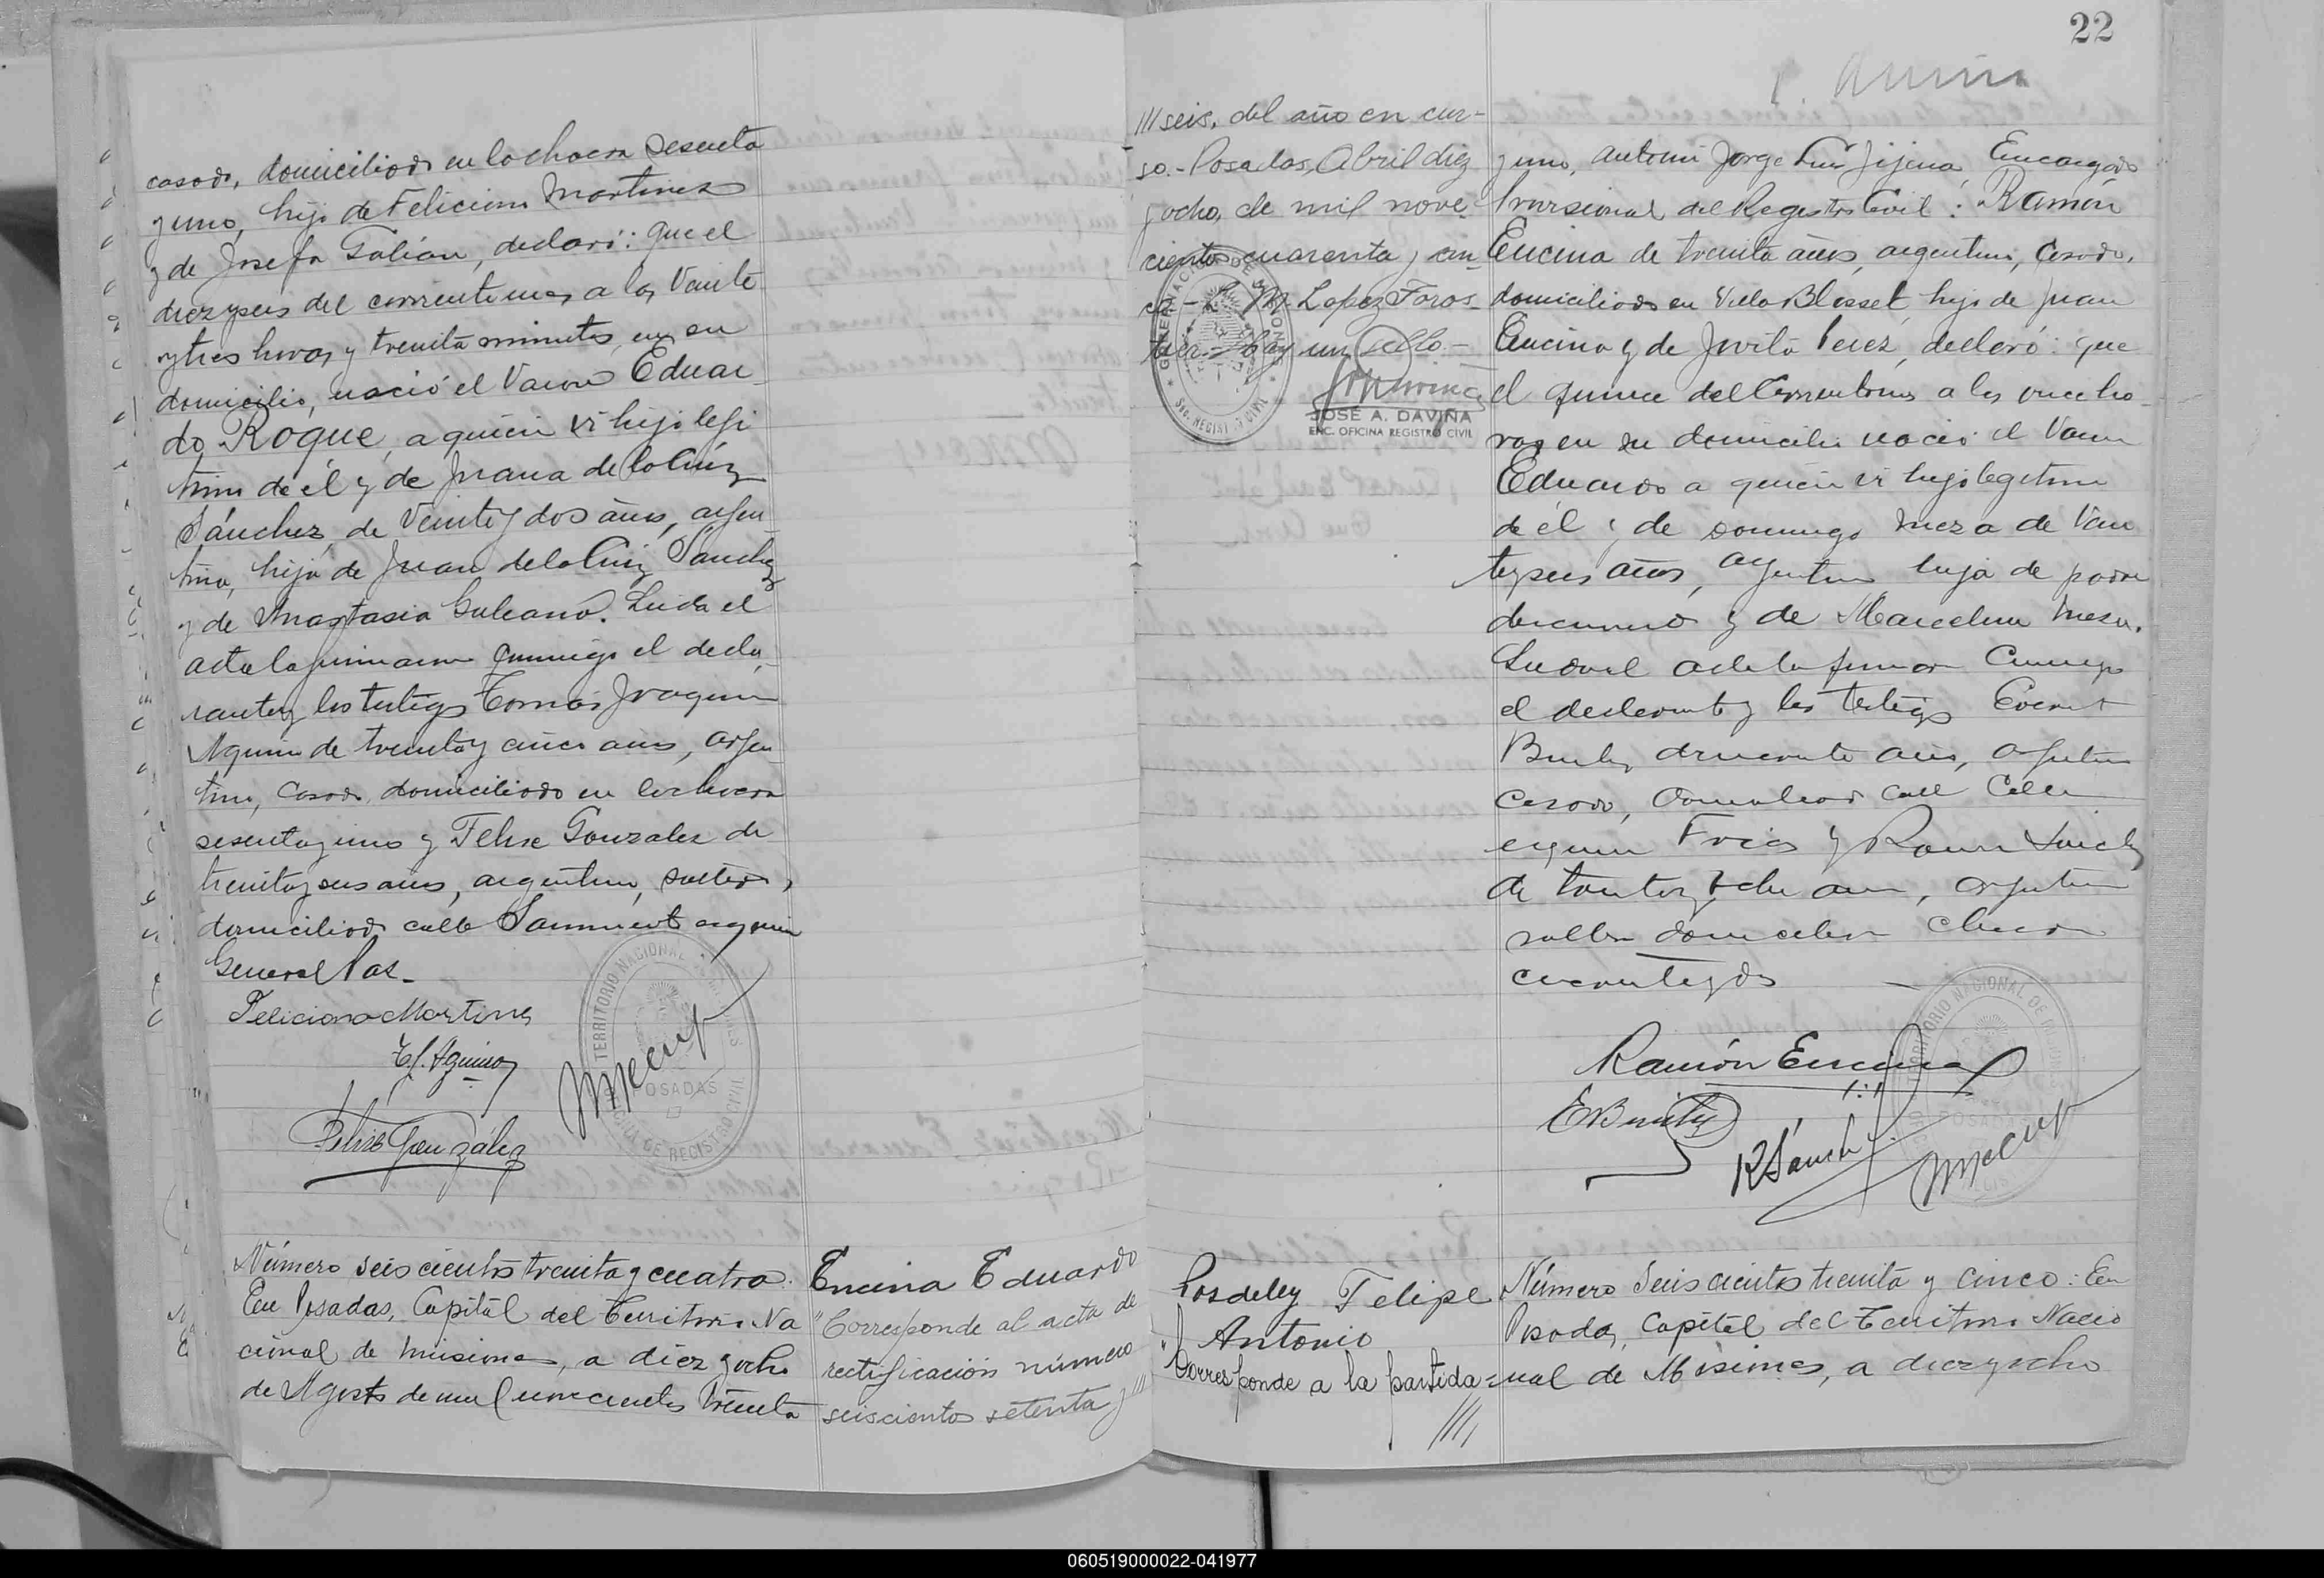 casado, domiciliado en la chacra sesenta
y uno, hijo de Feliciano Martinez
y de Josefa Galián, declaró: que el
diez y seis del corriente mes a las veinte
y tres horas y treinta minutos, en su
domicilio, nació el varon Eduar-
do Roque, a quién vi hijo legi
timo de él y de Juana de la Cruz
Sánchez, de veinte y dos años, argen
tina, hija de Juan de la Cruz Sanchez
y de Anastasia Galeano. Leida el
acta la firmaron conmigo el decla-
rante y los testigos Tomás Joaquin
Aquino de treinta y cinco años, argen
tino, casado, domiciliado en la chacra
sesenta y uno y Felix Gonzalez de
treinta y seis años, argentino, soltero,
domiciliado calle Sarmiento esquina
General Paz.
Feliciano Martinez
T. J. Aquino
Felix González
TERRITORIO NACIONAL DE MISIONES
POSADAS
OFICINA DE REGISTRO CIVIL
Número seiscientos treinta y cuatro.
En Posadas, Capital del Territorio Na
cional de Misiones, a diez y ocho
de Agosto de mil novecientos treinta
Encina Eduardo
"Corresponde al acta de
rectificación número
seiscientos setenta y ///
22
/// seis, del año en cur-
so.- Posadas, Abril diez
y ocho, de mil nove-
cientos cuarenta y cin-
co - L. M. Lopez Foros-
Hay un sello.-
JOSÉ A. DAVIÑA
ENC. OFICINA REGISTRO CIVIL
y uno, antemi Jorge Luis Jijena, Encargado
Provisional del Registro Civil: Ramón
Encina de treinta años, argentino, casado,
domiciliado en Villa Blosset, hijo de Juan
Encina y de Jovita Perez, declaró: que
el quince del corriente mes a las once ho-
ras en su domicilio nació el varon
Eduardo a quien vi hijo legitimo
de él y de Dominga Meza de vein
te y seis años, argentina hija de padre
desconocido y de Marcelina Mesa.
Leida el acta la firmaron conmigo
el declarante y los testigos
Benitez de cuarenta años, argentino
casado, domiciliado calle
esquina Frias y Ramon Sanchez
de treinta y ocho años, argentino
soltero domiciliado chacra
cuarenta y dos
Ramón Encina
E Benitez
R Sánchez
TERRITORIO NACIONAL DE MISIONES
POSADAS
Posdeley Felipe
Antonio
"Corresponde a la partida
////
Número Seiscientos treinta y cinco: En
Posadas, Capital del Territorio Nacio
nal de Misiones, a diez y ocho
060519000022-041977